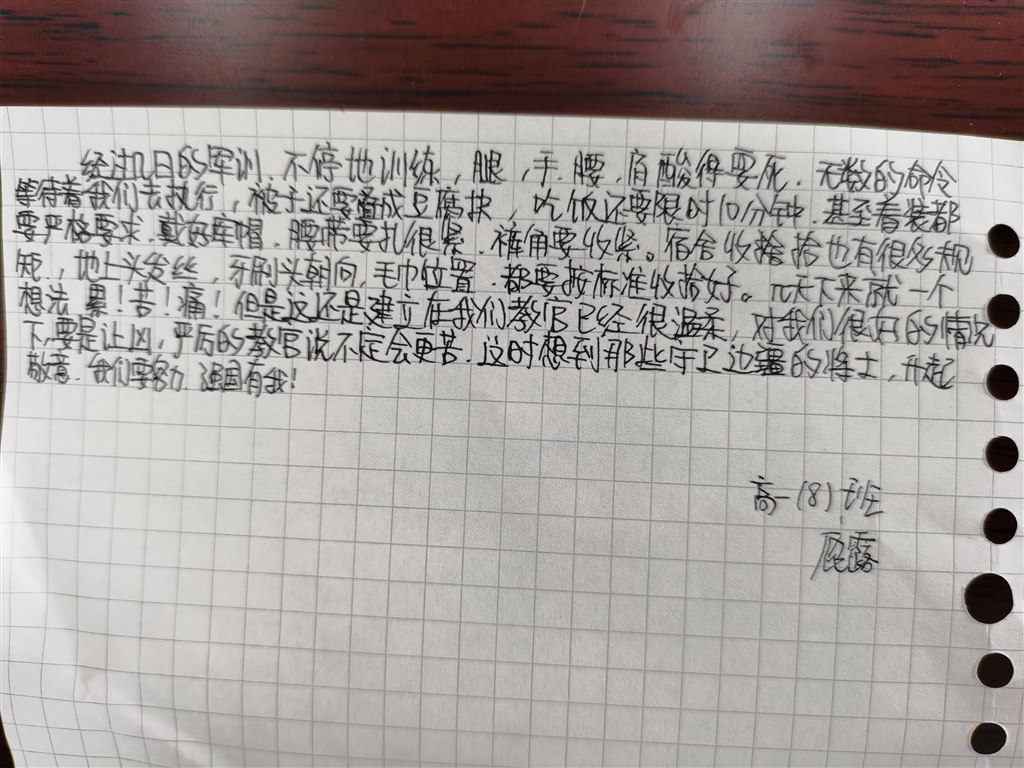 经过几日的军训,不停地训练,腿,手,腰,肩酸得要死.无数的命令
等待着我们去执行,被子还要叠成豆腐块,吃饭还要限时10分钟.甚至着装都
要严格要求.戴好军帽.腰带要扎很紧.裤角要收紧。宿舍收拾也有很多规
矩,地上头发丝,牙刷头朝向,毛巾位置.都要按标准收拾好。几天下来就一个
想法 累!苦!痛!但是这还是建立在我们教官已经很温柔,对我们很好的情况
下,要是让凶,严厉的教官说不定会更苦.这时想到那些守卫边疆的将士,升起
敬意.我们要努力.强国有我!
高一(8)班
露